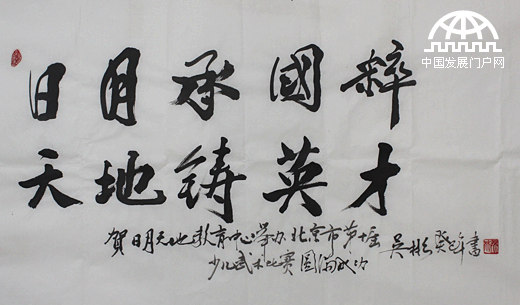 中国发展门户网
日月承國粹
天地铸英才
賀日月天地教育中心举办北京市
少儿武术比赛圆满成功
吴彬癸巳年書